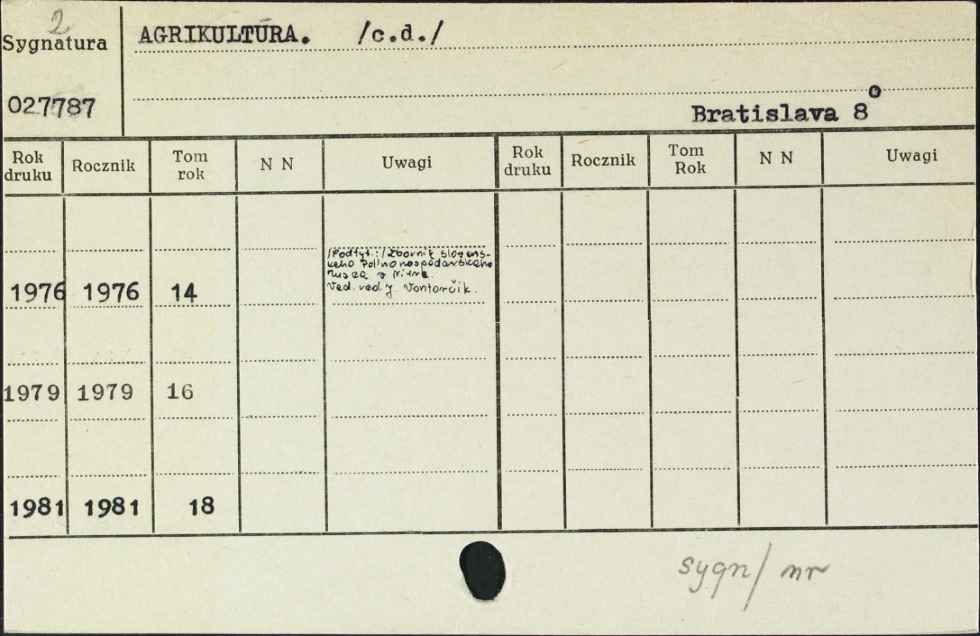 2
Sygnatura
AGRIKULTÚRA. /c.d./
027787
Bratislava 8°
Rok druku Rocznik Tom rok N N Uwagi Rok druku Rocznik Tom Rok N N Uwagi
/Podtyt.:/ Zborník slovens-
keho Poľnohospodarskeho
Muzea v Nitre.
Ved. red. J. Vontorčík.
1976 1976 14
1979 1979 16
1981 1981 18
sygn/ nr